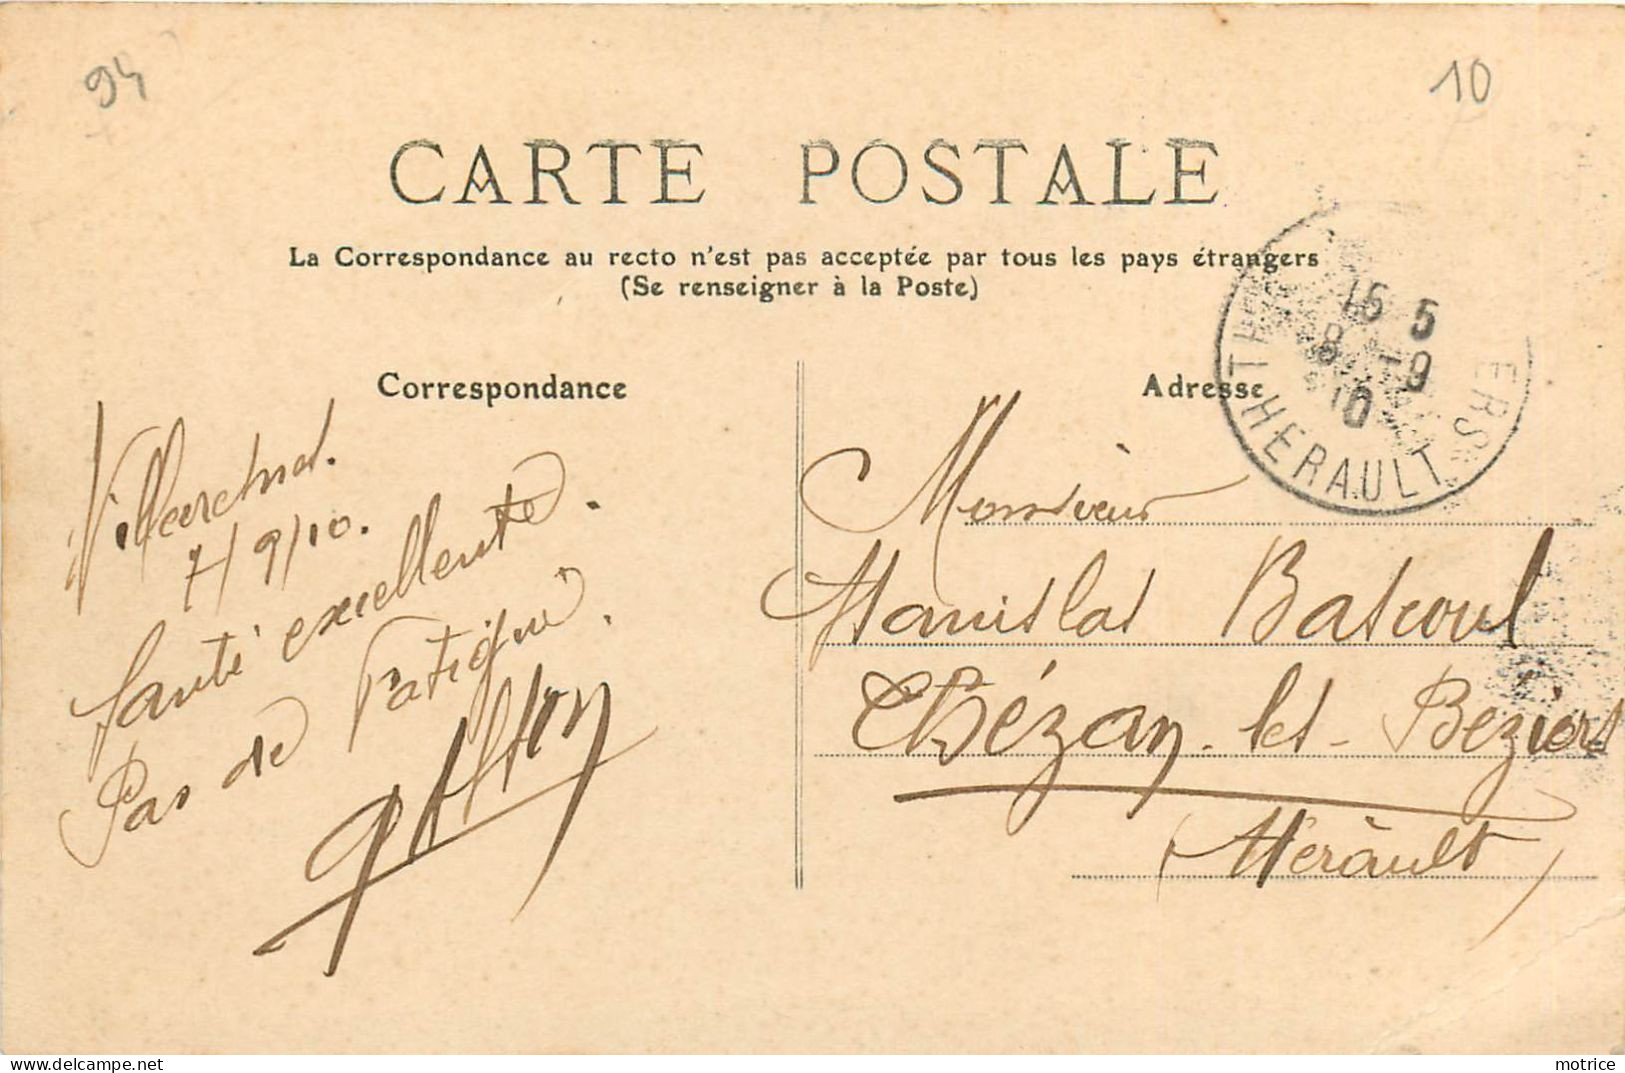 94
10
CARTE POSTALE
La Correspondance au recto n'est pas acceptée par tous les pays étrangers
(Se renseigner à la Poste)
15 5
8 -9
10
TH ERS
HERAULT
Correspondance
Adresse
7/9/10.
Santé excellente.
Pas de Fatigue.
Monsieur
Stanislas Bascoul
Thézan-les-Béziers
(Hérault)
motrice